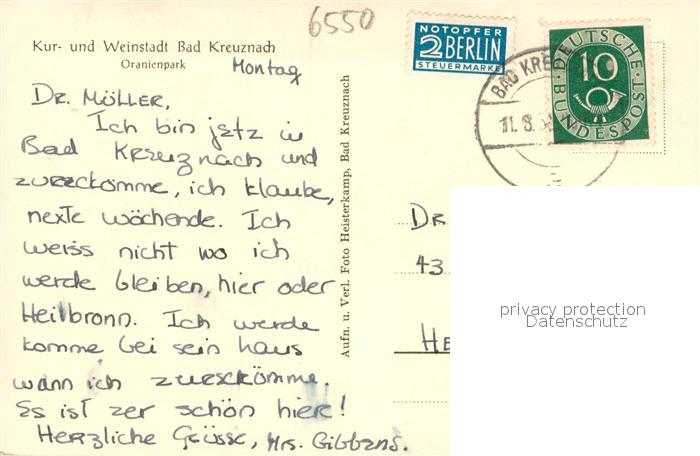 6550
NOTOPFER
2 BERLIN
STEUERMARKE
DEUTSCHE
10
BUNDESPOST
BAD KRE
11. 8.
Kur- und Weinstadt Bad Kreuznach
Oranienpark
Montag
Dr. Möller,
Ich bin jetz in
Bad Kreuznach und
zureckomme, ich klaube,
nexte wöchende. Ich
weiss nicht wo ich
werde bleiben, hier oder
Heilbronn. Ich werde
komme bei sein haus
wann ich zureskömme.
Es ist zer schön hier!
Herzliche Grüsse, Mrs. Gibbens.
Aufn. u. Verl. Foto Heisterkamp, Bad Kreuznach
Dr
43
He
privacy protection
Datenschutz